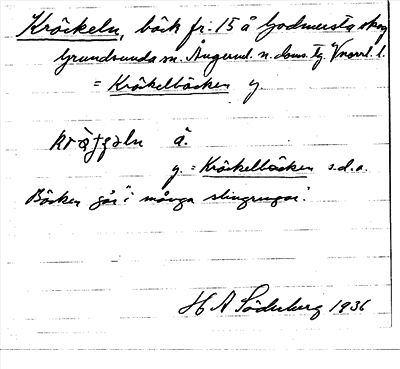 Kröckeln, bäck fr. 15 å Godmersta skog
Grundsunda sn. Ångerml. n. doms. tg. Vnorrl. l.
= Kröckelbäcken y.
å.
y. = Kröckelbäcken s.d.o.
Bäcken går "i många slingringar".
H A Söderberg 1936